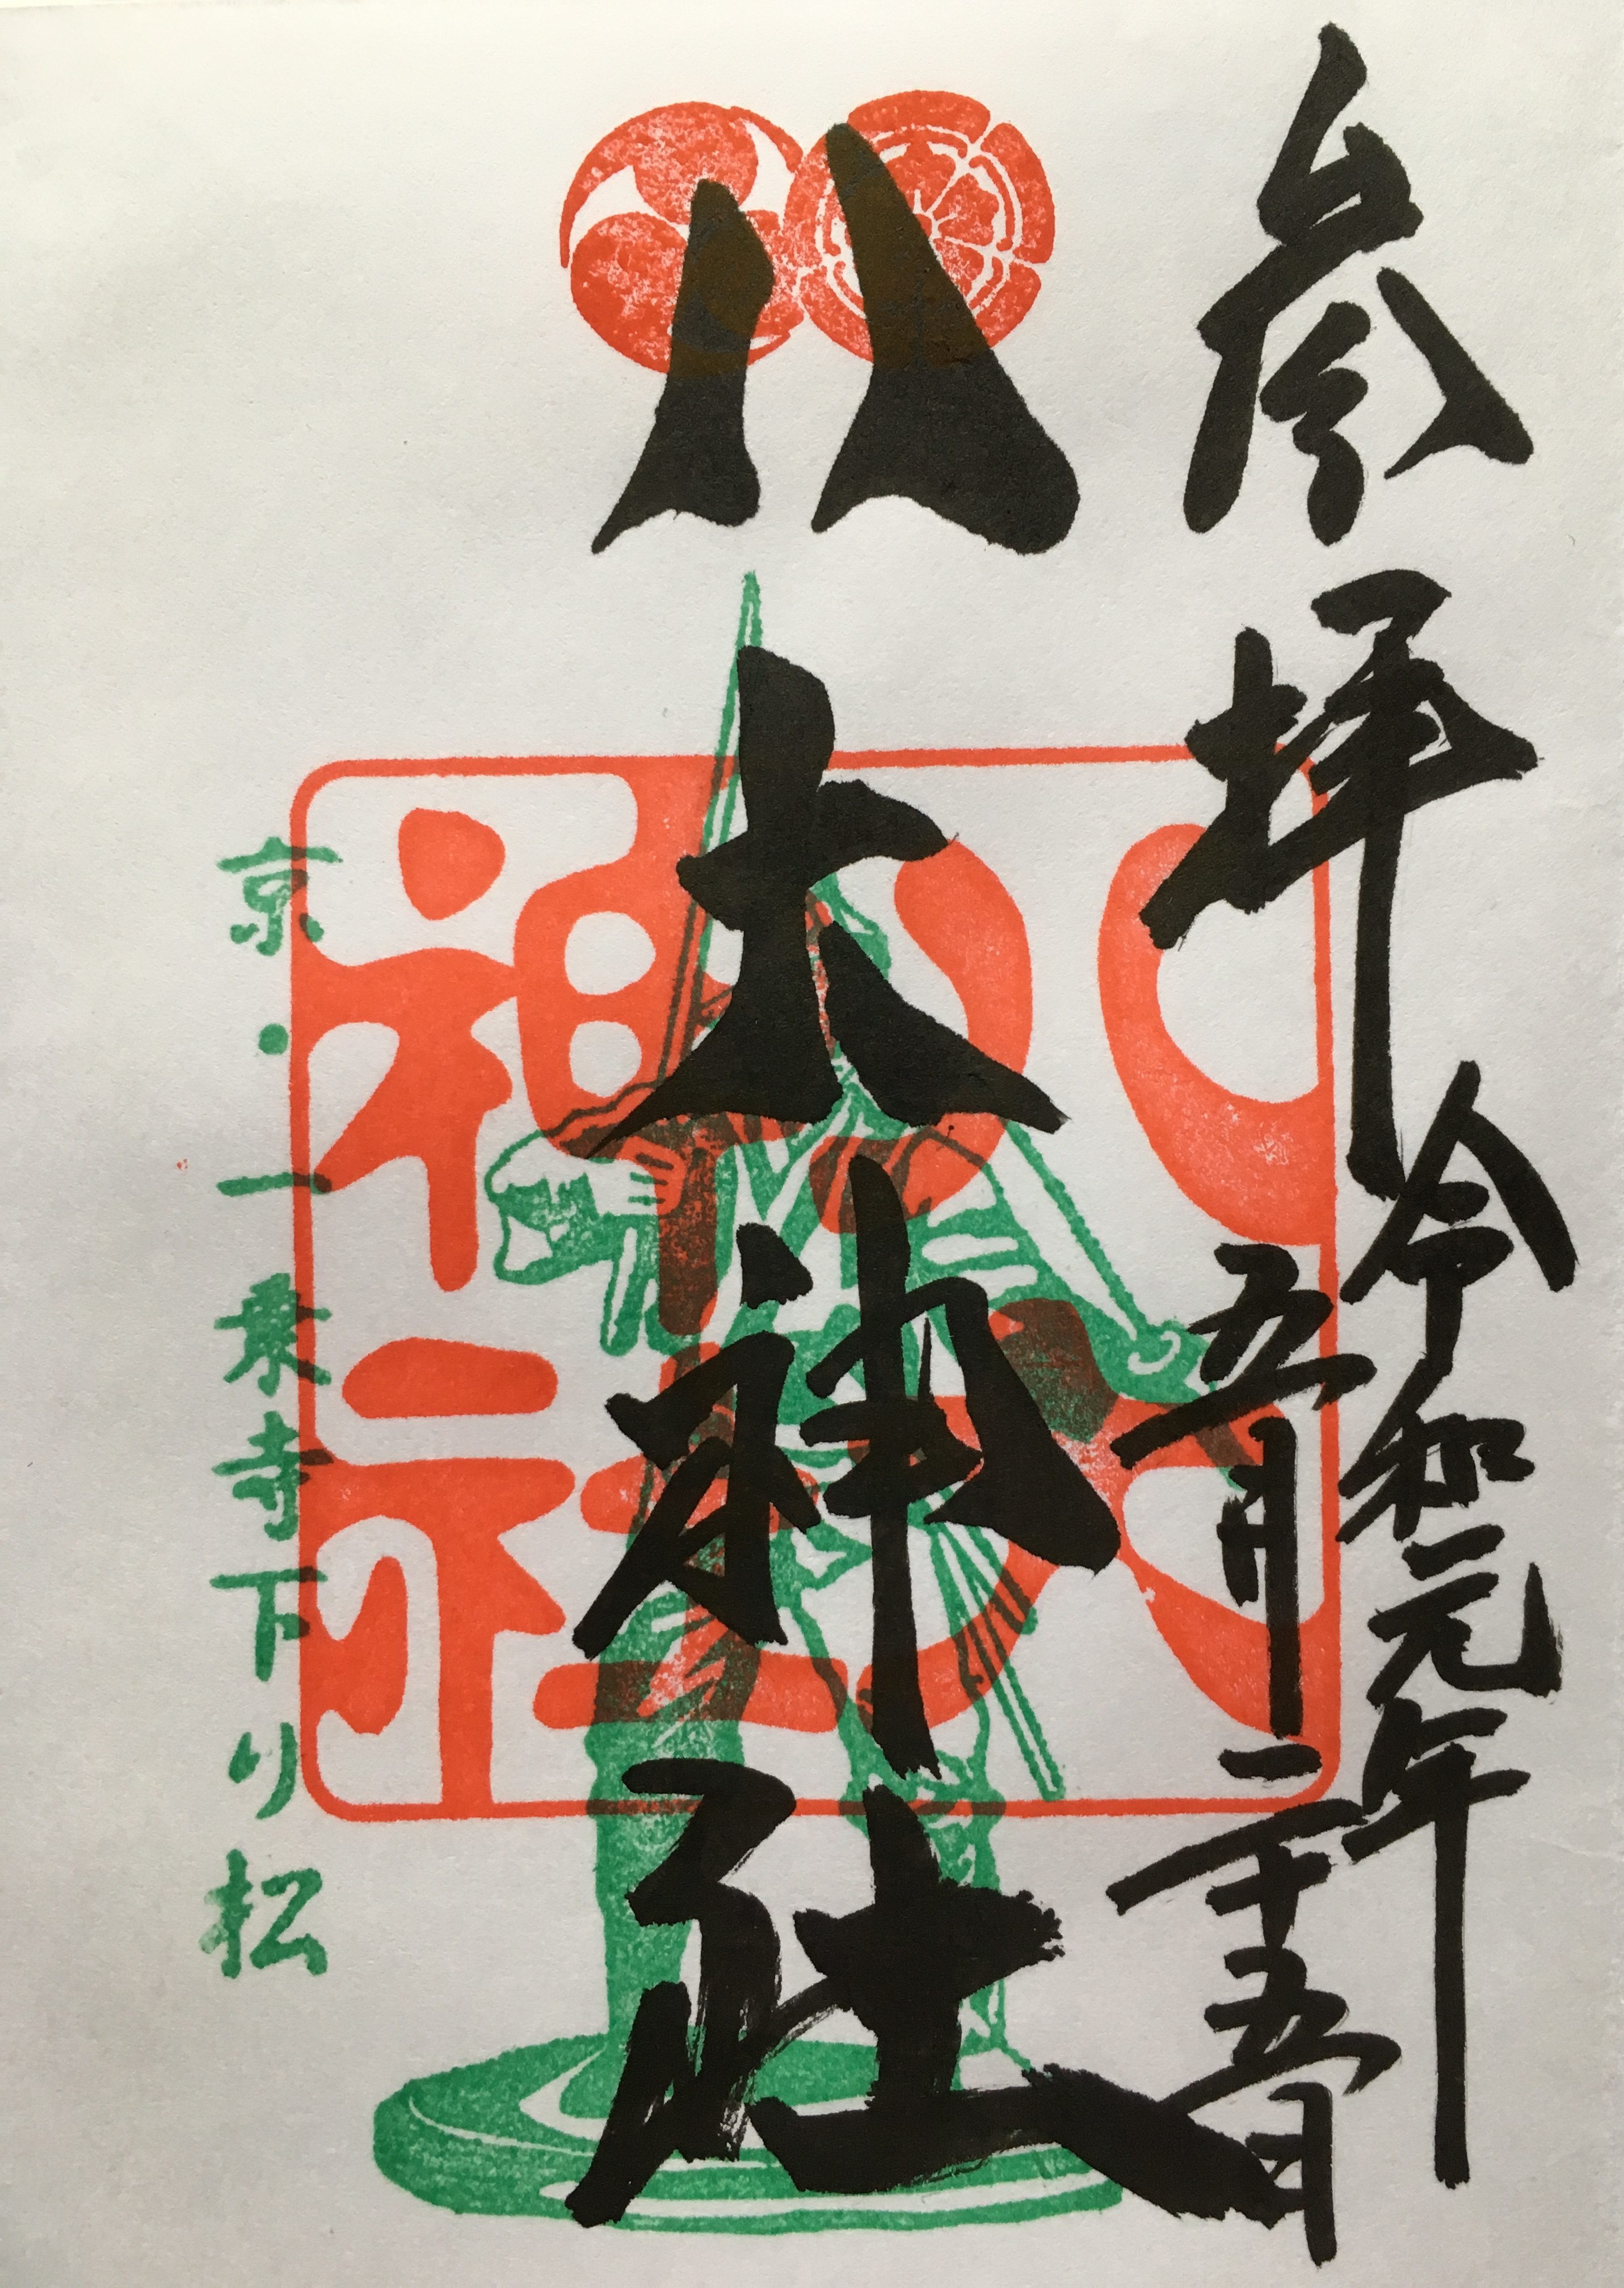 参拝
令和元年
五月二十五日
八大神社
八大神社
京・一乗寺下り松